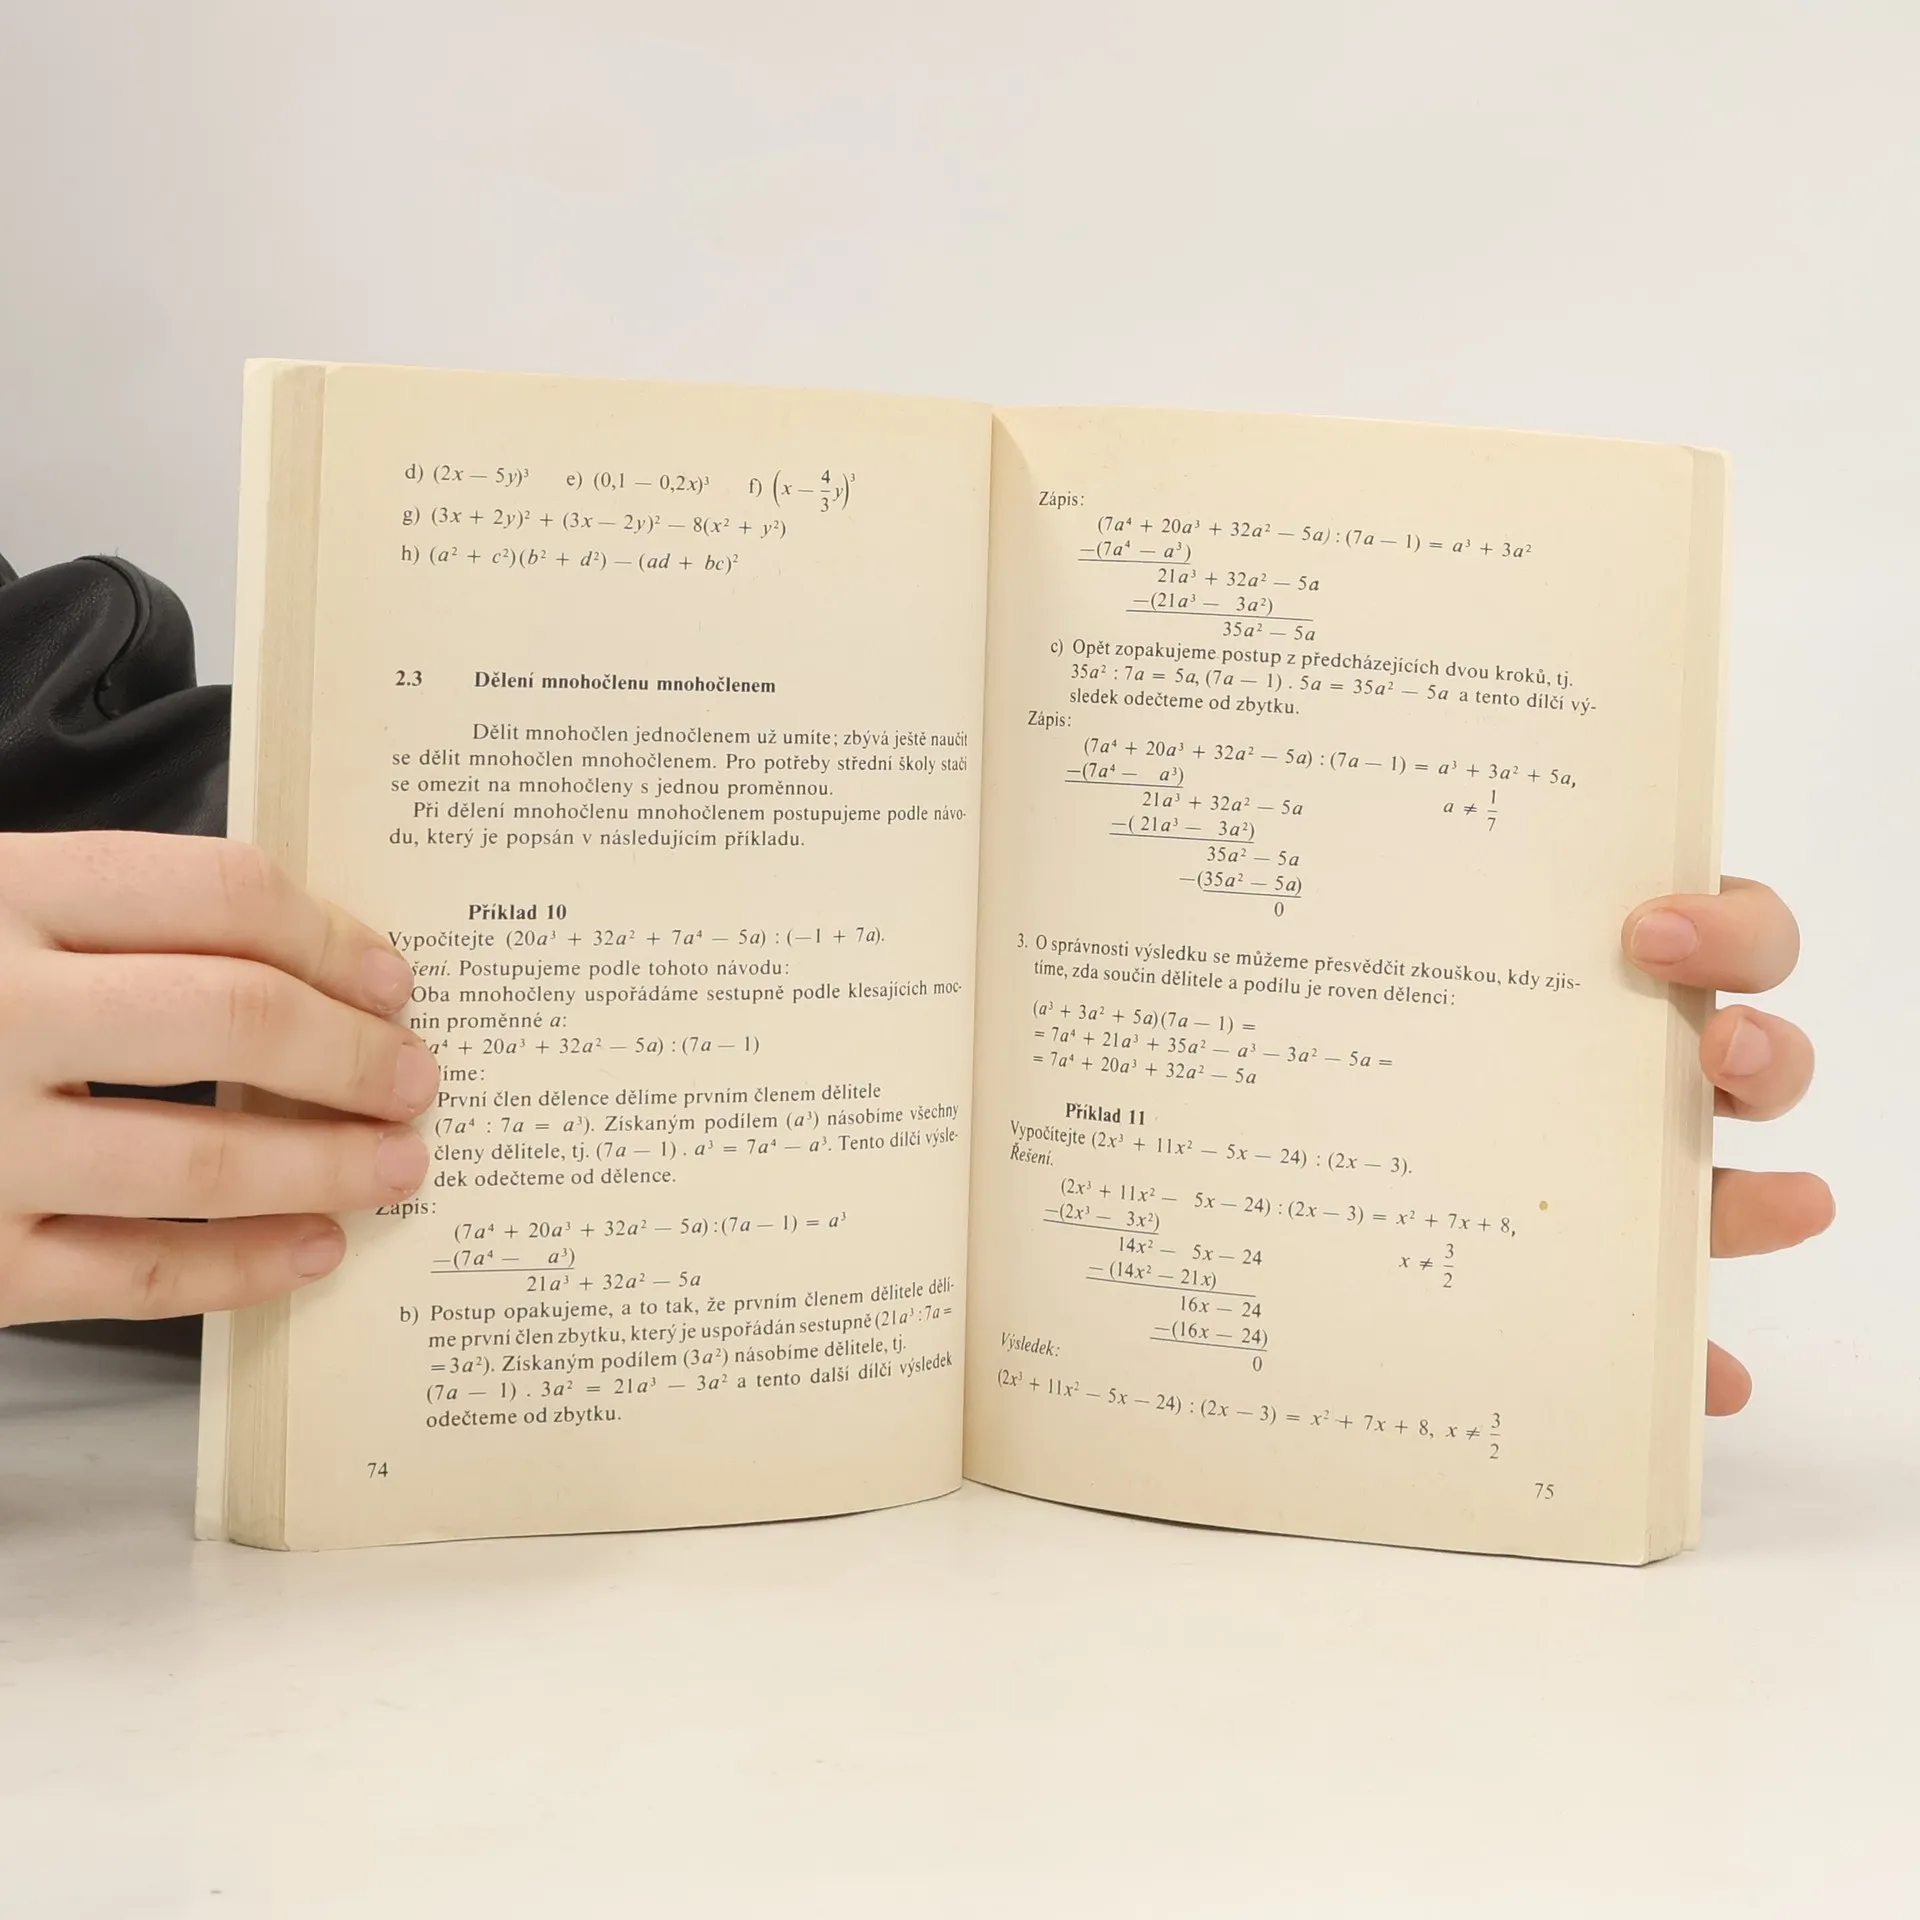 d) (2x — 5y)³ e) (0,1 — 0,2x)³ f) (x — 4/3 y)³
g) (3x + 2y)² + (3x — 2y)² — 8(x² + y²)
h) (a² + c²)(b² + d²) — (ad + bc)²
2.3 Dělení mnohočlenu mnohočlenem
Dělit mnohočlen jednočlenem už umíte; zbývá ještě naučit
se dělit mnohočlen mnohočlenem. Pro potřeby střední školy stačí
se omezit na mnohočleny s jednou proměnnou.
Při dělení mnohočlenu mnohočlenem postupujeme podle návo-
du, který je popsán v následujícím příkladu.
Příklad 10
Vypočítejte (20a³ + 32a² + 7a⁴ — 5a) : (—1 + 7a).
šení. Postupujeme podle tohoto návodu:
Oba mnohočleny uspořádáme sestupně podle klesajících moc-
nin proměnné a:
a⁴ + 20a³ + 32a² — 5a) : (7a — 1)
líme:
První člen dělence dělíme prvním členem dělitele
(7a⁴ : 7a = a³). Získaným podílem (a³) násobíme všechny
členy dělitele, tj. (7a — 1) . a³ = 7a⁴ — a³. Tento dílčí výsle-
dek odečteme od dělence.
Zápis:
(7a⁴ + 20a³ + 32a² — 5a) : (7a — 1) = a³
—(7a⁴ — a³)
21a³ + 32a² — 5a
b) Postup opakujeme, a to tak, že prvním členem dělitele dělí-
me první člen zbytku, který je uspořádán sestupně (21a³ : 7a =
= 3a²). Získaným podílem (3a²) násobíme dělitele, tj.
(7a — 1) . 3a² = 21a³ — 3a² a tento další dílčí výsledek
odečteme od zbytku.
74
Zápis:
(7a⁴ + 20a³ + 32a² — 5a) : (7a — 1) = a³ + 3a²
—(7a⁴ — a³)
21a³ + 32a² — 5a
—(21a³ — 3a²)
35a² — 5a
c) Opět zopakujeme postup z předcházejících dvou kroků, tj.
35a² : 7a = 5a, (7a — 1) . 5a = 35a² — 5a a tento dílčí vý-
sledek odečteme od zbytku.
Zápis:
(7a⁴ + 20a³ + 32a² — 5a) : (7a — 1) = a³ + 3a² + 5a,
—(7a⁴ — a³)
21a³ + 32a² — 5a a ≠ 1/7
—( 21a³ — 3a²)
35a² — 5a
—(35a² — 5a)
0
3. O správnosti výsledku se můžeme přesvědčit zkouškou, kdy zjis-
tíme, zda součin dělitele a podílu je roven dělenci:
(a³ + 3a² + 5a)(7a — 1) =
= 7a⁴ + 21a³ + 35a² — a³ — 3a² — 5a =
= 7a⁴ + 20a³ + 32a² — 5a
Příklad 11
Vypočítejte (2x³ + 11x² — 5x — 24) : (2x — 3).
Řešení.
(2x³ + 11x² — 5x — 24) : (2x — 3) = x² + 7x + 8,
—(2x³ — 3x²)
14x² — 5x — 24 x ≠ 3/2
— (14x² — 21x)
16x — 24
—(16x — 24)
0
Výsledek:
(2x³ + 11x² — 5x — 24) : (2x — 3) = x² + 7x + 8, x ≠ 3/2
75